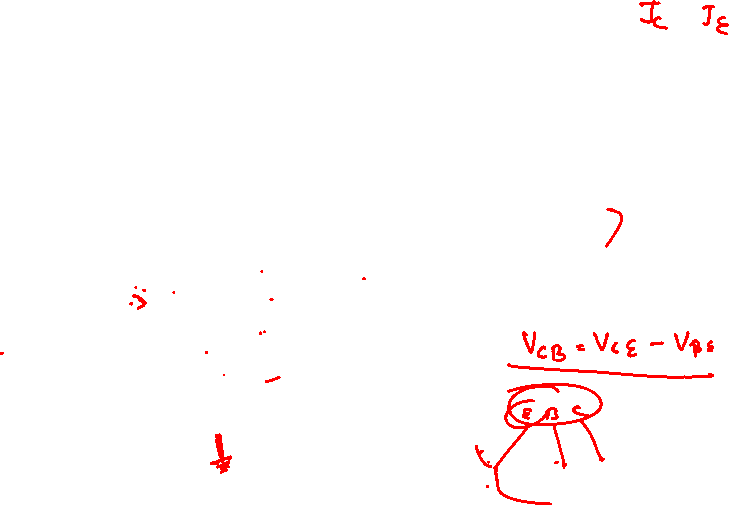 I_C I_E
V_CB = V_CE - V_BE
E B C